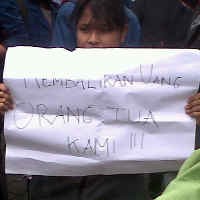 KEMBALIKAN UANG
ORANG TUA
KAMI !!!